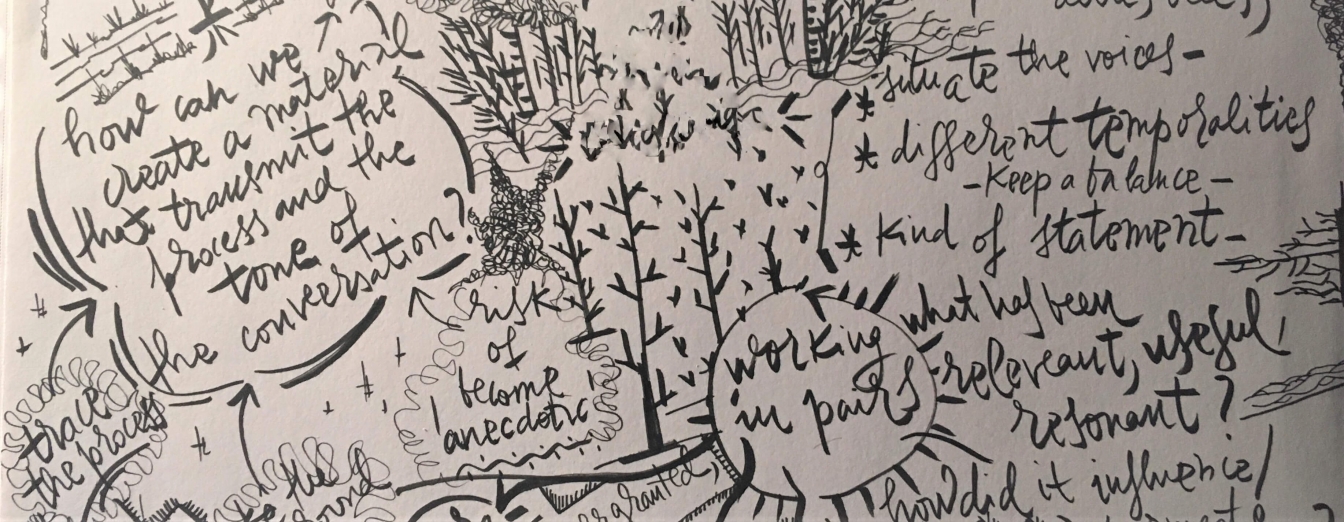 how can we
create a material
that transmit the
process and the
tone of
the conversation?
trace
the process
the
risk
of
become
anecdotic
working
in pairs
granted,
situate the voices -
* different temporalities
- Keep a balance -
* Kind of statement -
what has been
releveant, useful,
resonant?
how did it influence/